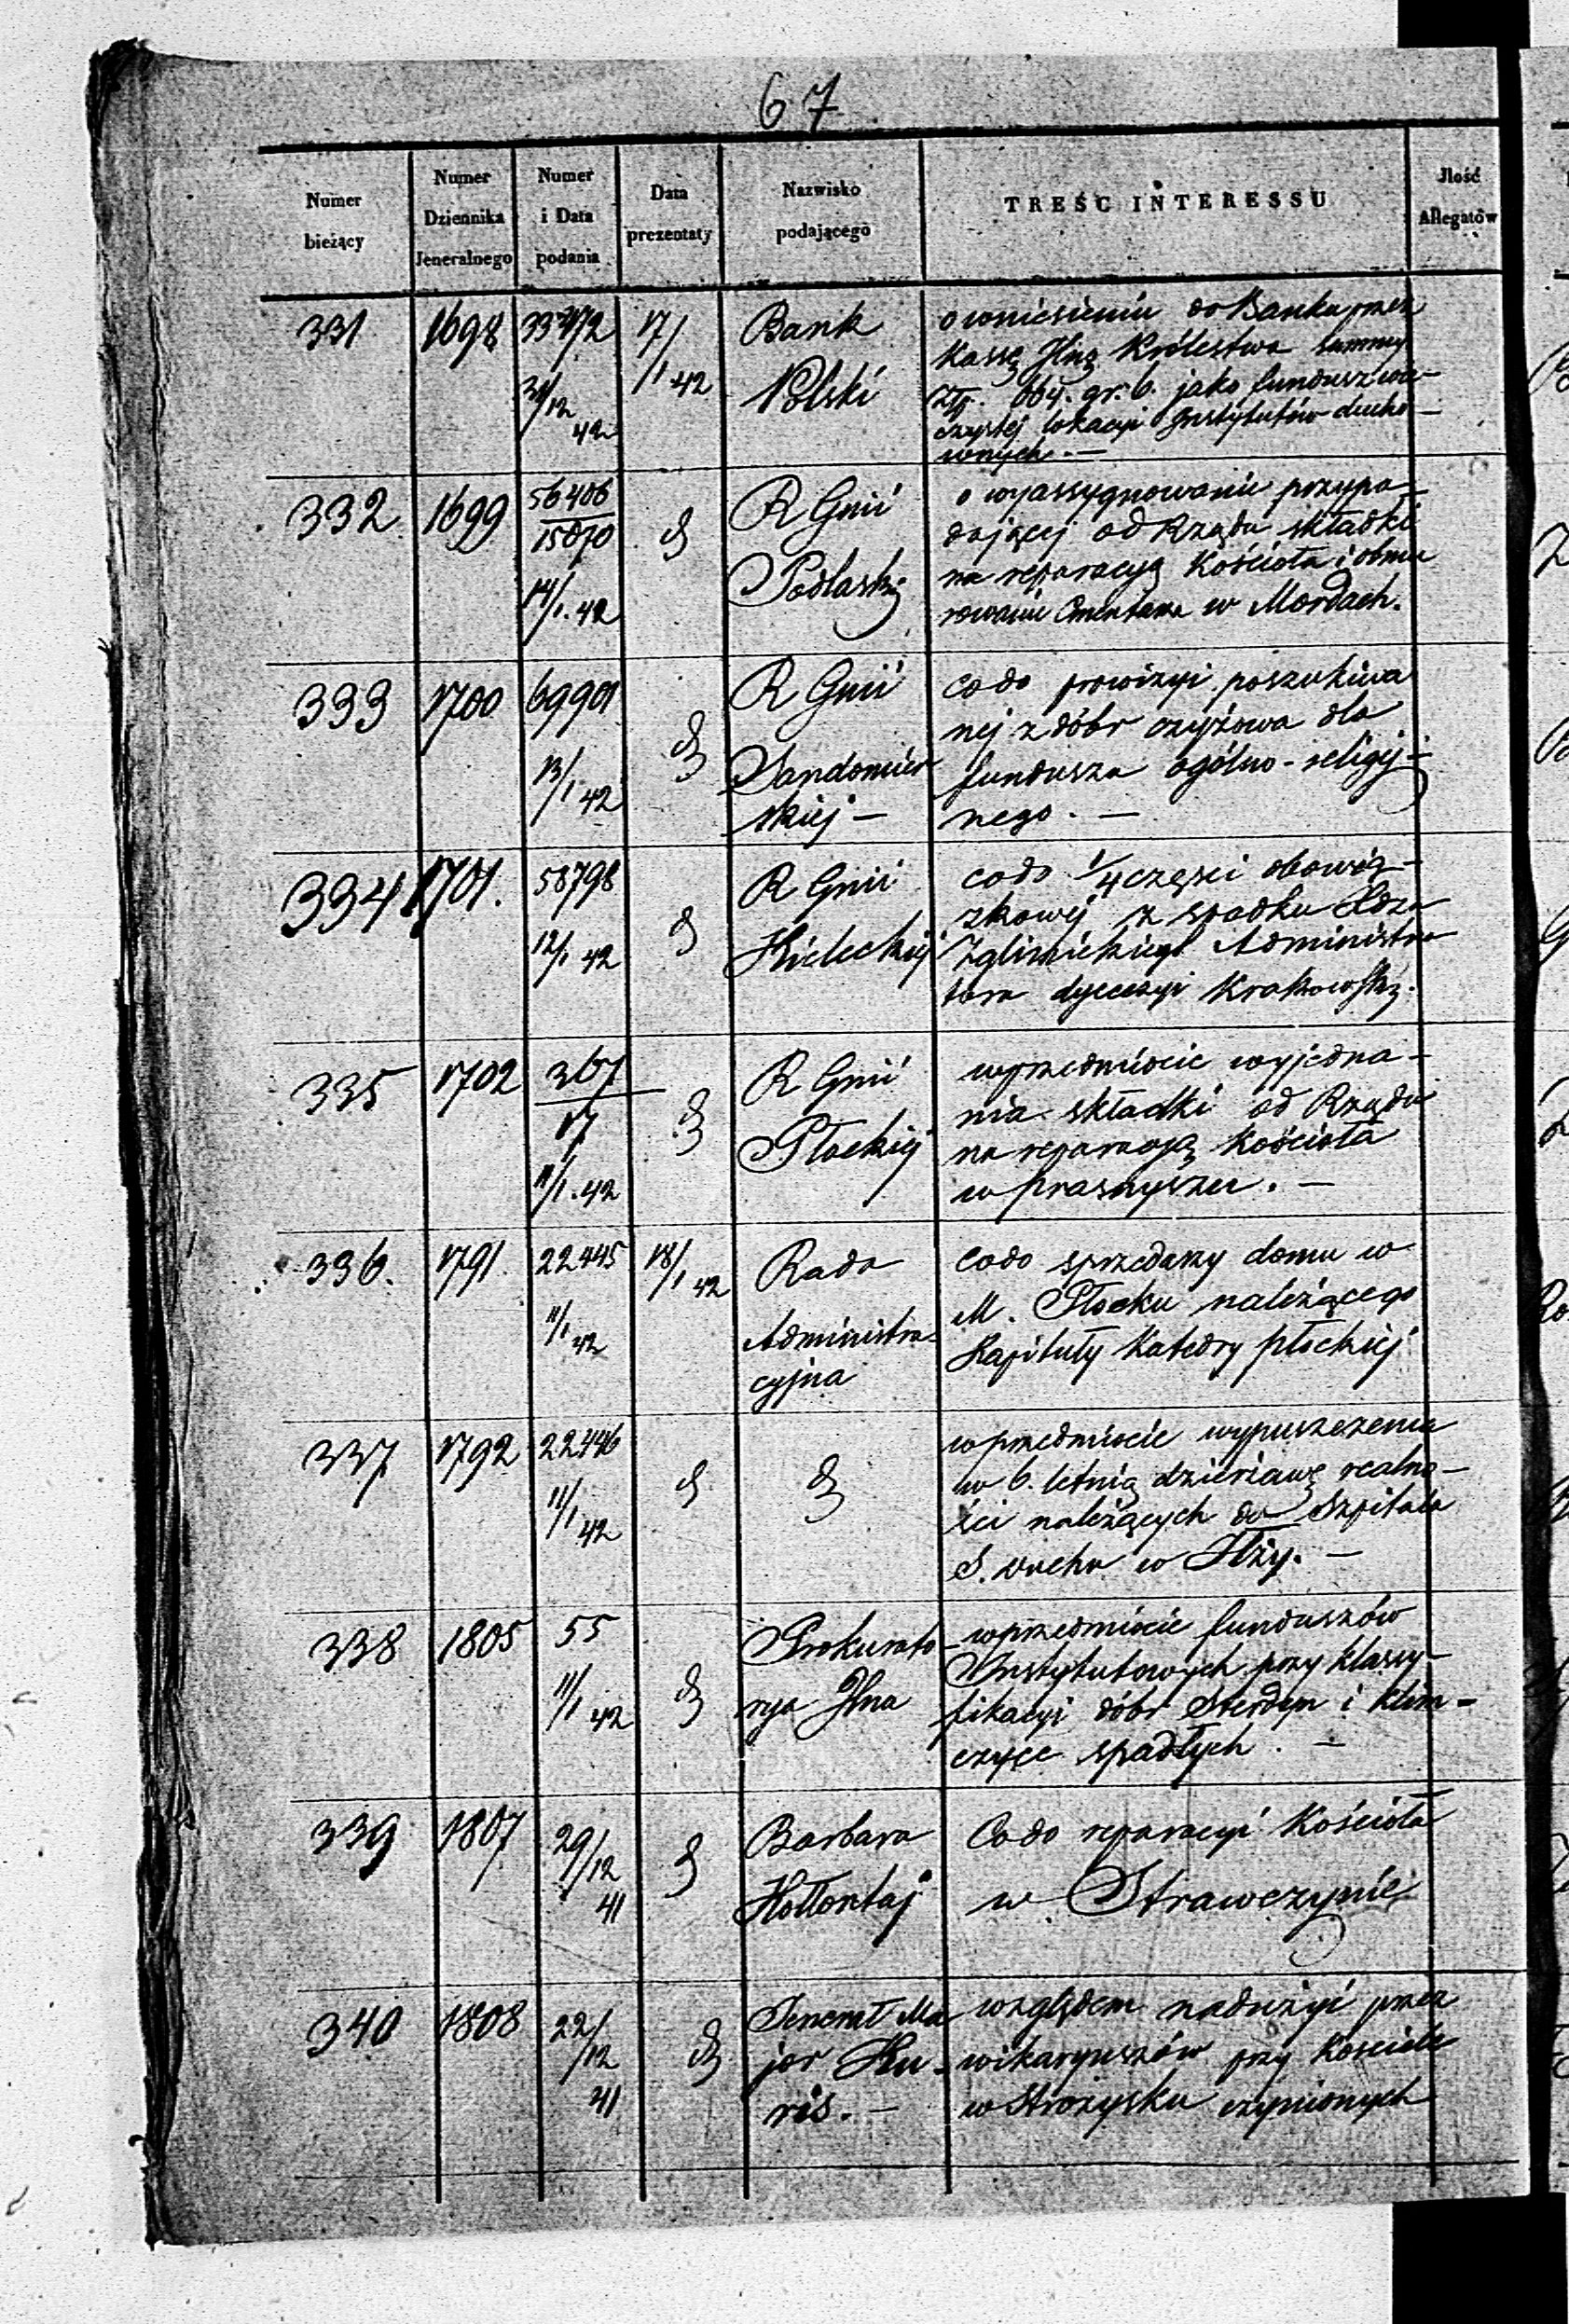 67
Numer bieżący | Numer Dziennika Jeneralnego | Numer i Data podania | Data prezentaty | Nazwisko podającego | TREŚĆ INTERESSU | Jlość Allegatów
331 | 1698 | 33272 31/12 42 | 17/1 42 | Bank Polski
o wniesieniu do Banku przez
Kassę Jlną Królestwa summy
Złp. 664. gr. 6. jako fundusz wie-
czystej lokacyi Instytutów ducho-
wnych. —
332 | 1699 | 56406 15870 14/1. 42 | R Gnii Podlaskiej
o wyassygnowanie przypa-
dającej od Rządu składki
na reparacyą Kościoła i obmu
rowanie Cmentarza w Mordach.
333 | 1700 | 69901 13/1 42 | R Gnii Sandomier skiej —
co do prowizyi poszukiwa
nej z dóbr Czyżowa dla
funduszu ogólno-religij-
nego. —
334 | 1701. | 58798 12/1 42 | R Gnii Kieleckiej
co do 1/4 części obowią-
zkowej z spadku Xdza
Zglinickiego Administra
tora dyecezyi Krakowskiej.
335 | 1702 | 367 17 11/1. 42 | R Gnii Płockiej
w przedmiocie wyjedna-
nia składki od Rządu
na reparacyą Kościoła
w Prasnyszu. —
336. | 1791 | 22445 11/1 42 | 18/1 42 | Rada Administra- cyjna
co do sprzedaży domu w
M. Płocku należącego
Kapituły Katedry płockiej
337 | 1792 | 22446 11/1 42
w przedmiocie wypuszczenia
w 6. letnią dzierżawę realno-
ści należących do Szpitala
S. Ducha w Iłży. —
338 | 1805 | 55 11/1 42 | Prokurato- rya Jlna
w przedmiocie funduszów
Instytutowych przy klassy-
fikacyi dóbr Sterdyn i Klim-
czyce spadłych. —
339 | 1807 | 29/12 41 | Barbara Kołłontaj
Co do reparacyi Kościoła
w Strawczynie
340 | 1808 | 22/12 41 | Jenerał Ma jor Hu- ris. —
względem nadużyć przez
wikaryuszów przy Kościele
w Strożysku czynionych